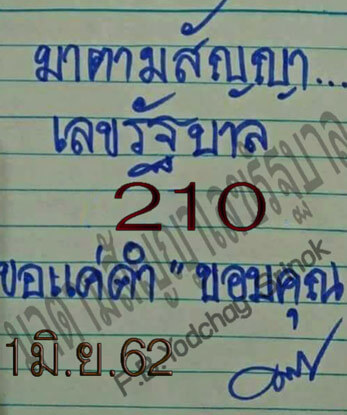 มาตามสัญญา...
เลขรัฐบาล
210
ขอแค่คำ "ขอบคุณ
1มิ.ย.62